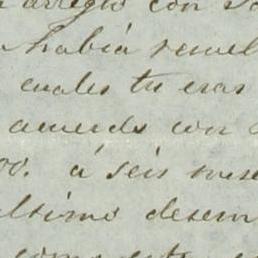 arreglo con
habia
cuales tu eras
acuerdo con
00. á seis mese
ltimo desem